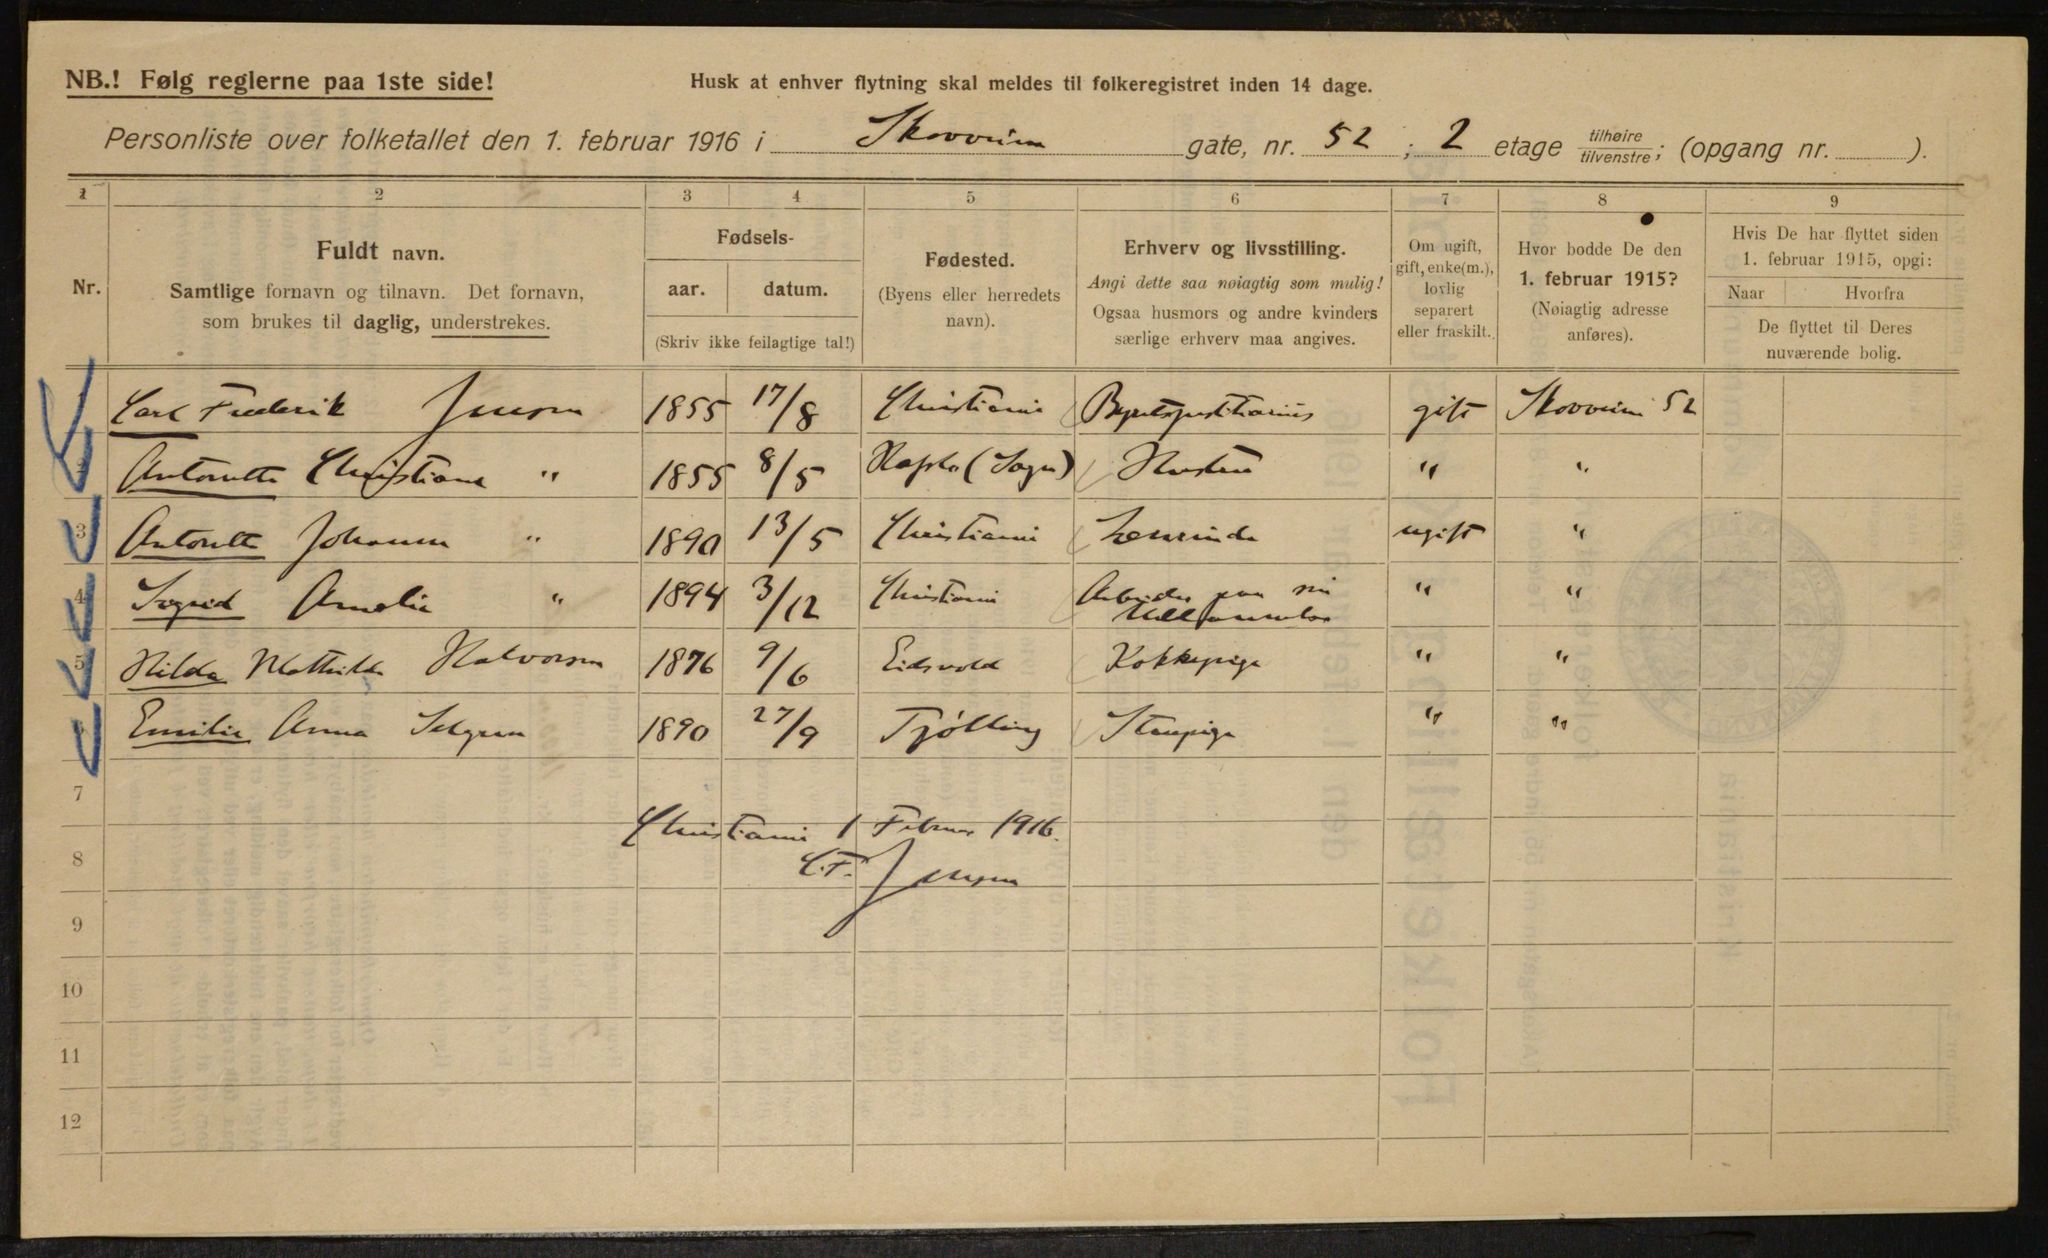 NB.! Følg reglerne paa 1ste side!
Husk at enhver flytning skal meldes til folkeregistret inden 14 dage.
Personliste over folketallet den 1. februar 1916 i Skovveien gate, nr. 52 ; 2 etage tilhøire/tilvenstre; (opgang nr. ).
1 2 3 4 5 6 7 8 9
Nr.
Fuldt navn.
Samtlige fornavn og tilnavn. Det fornavn,
som brukes til daglig, understrekes.
Fødsels-
aar. datum.
(Skriv ikke feilagtige tal!)
Fødested.
(Byens eller herredets
navn).
Erhverv og livsstilling.
Angi dette saa nøiagtig som mulig!
Ogsaa husmors og andre kvinders
særlige erhverv maa angives.
Om ugift,
gift, enke(m.),
lovlig
separert
eller fraskilt.
Hvor bodde De den
1. februar 1915?
(Nøiagtig adresse
anføres).
Hvis De har flyttet siden
1. februar 1915, opgi:
Naar Hvorfra
De flyttet til Deres
nuværende bolig.
Carl Frederik Jensen 1855 17/8 Christiania Byretsjustitiarius gift Skovveien 52
2 Antonette Christiane " 1855 8/5 Hafslo (Sogn) Hustru " "
3 Antonette Johanne " 1890 13/5 Christiania ugift "
4 Sigrid Amalie " 1894 3/12 Christiania Arbeider paa sin " "
5 Hilda Mathilde Halvorsen 1876 9/6 Eidsvold Kokkepige " "
Emilie Anna 1890 27/9 Tjølling Stuepige " "
7
Christiania 1 Februar 1916.
8
C.F. Jensen
9
10
11
12